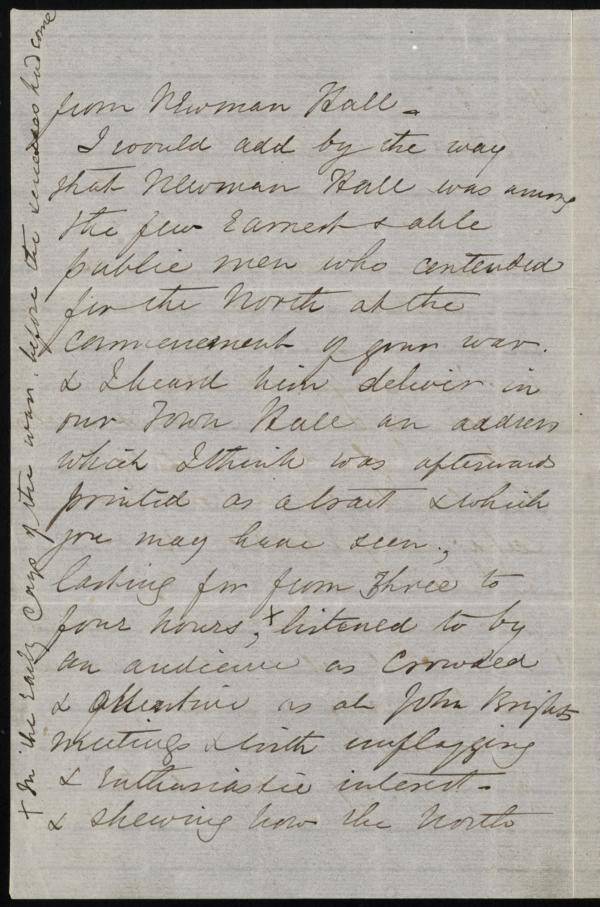 from Newman Hall -
I would add by the way
that Newman Hall was among
the few Earnest & able
public men who contended
for the North at the
commencement of your war.
& I heard him deliver in
our Town Hall an address
which I think was afterwards
printed as a tract & which
you may have seen,
lasting for from three to
four hours, x listened to by
an audience as crowded
& attentive as at John Brights
meetings & with unflagging
& Enthusiastic interest -
& shewing how the North
x In the Early Days of the war, before the successes had come